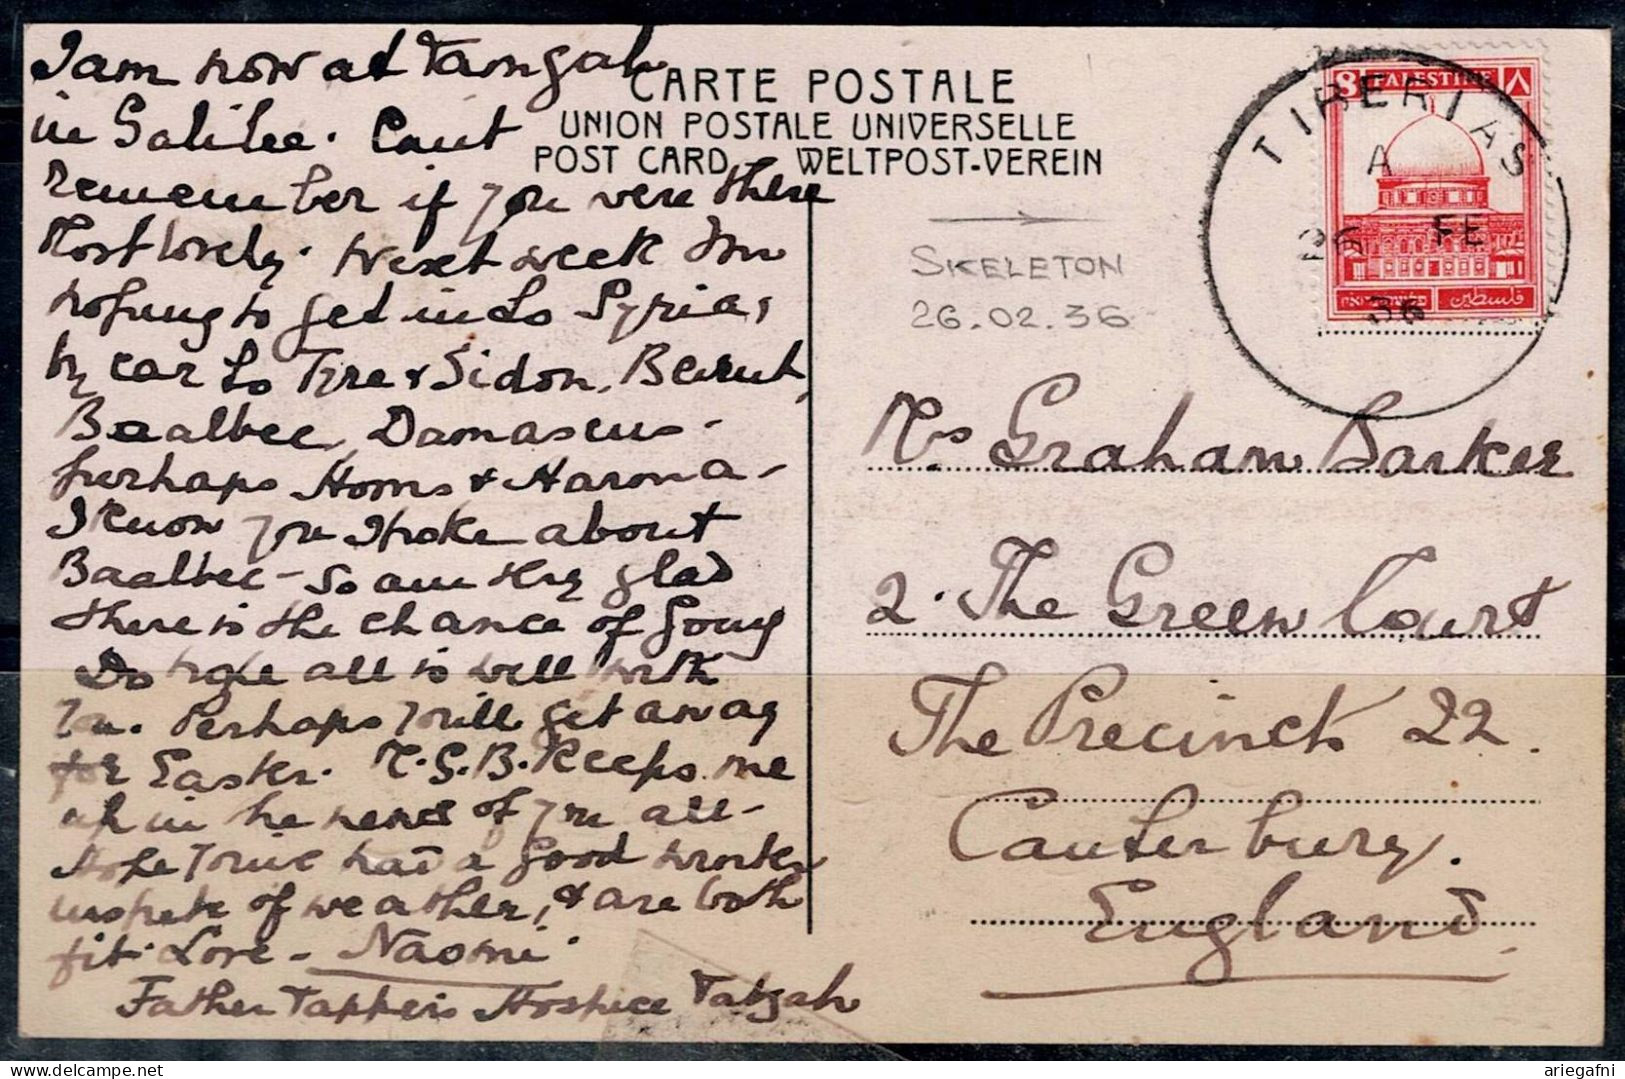 I am now at Tamgah
in Galilee. Cant
remember if you were there
Most lovely. Next week Im
hoping to get into Syria,
by car to Tyre & Sidon, Beirut,
Baalbec, Damascus -
perhaps Homs & Hama -
I know you spoke about
Baalbec - so am very glad
there is the chance of going
Do hope all is well with
you. Perhaps you'll get away
for Easter. M.G.B. keeps me
up in the news of you all -
Hope you've had a good winter
inspite of weather, & are both
fit. Love - Naomi.
Father Tapper's Hospice Tabgah
CARTE POSTALE
UNION POSTALE UNIVERSELLE
POST CARD WELTPOST-VEREIN
SKELETON
26.02.36
8 PALESTINE ٨
فلسطين
TIBERIAS
A
26 FE
36
Mrs Graham Barker
2. The Green Court
The Precincts 22.
Canterbury.
England.
ariegafni